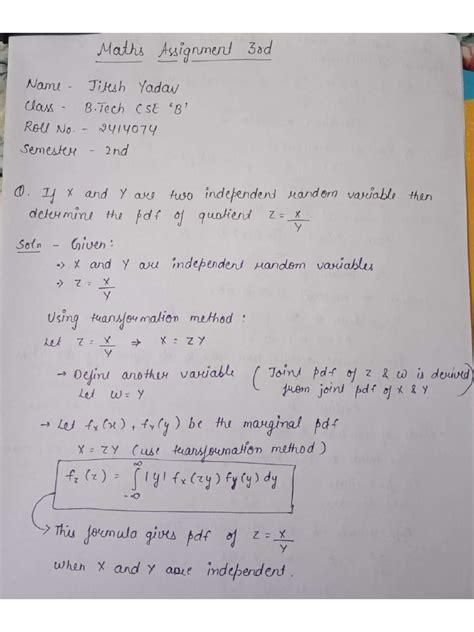 Maths Assignment 3rd
Name - Jitesh Yadav
Class - B.Tech CSE 'B'
Roll No. - 2414074
Semester - 2nd
Q. If X and Y are two independent random variable then
determine the pdf of quotient Z = X/Y
Soln - Given:
→ X and Y are independent random variables
→ Z = X/Y
Using transformation method:
Let Z = X/Y ⇒ X = ZY
→ Define another variable (Joint pdf of Z & W is derived
Let W = Y from joint pdf of X & Y)
→ Let fx(x), fy(y) be the marginal pdf
X = ZY (use transformation method)
fz(z) = ∫_{-∞}^{∞} |y| fx(zy) fy(y) dy
→ This formula gives pdf of Z = X/Y
when X and Y are independent.